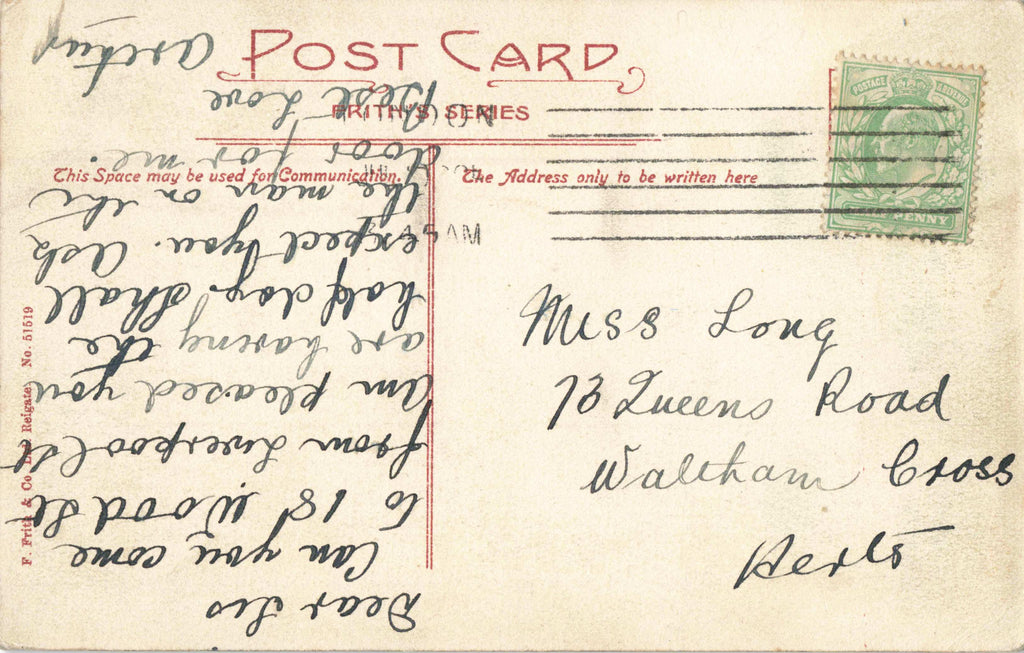 POST CARD
FRITH'S SERIES
This Space may be used for Communication.
The Address only to be written here
POSTAGE REVENUE
HALF PENNY
45AM
Miss Long
73 Queens Road
Waltham Cross
Herts
Dear Sis
Can you come
to 18 Wood St
from Liverpool St
Am pleased you
are having the
half day. Shall
expect you. Ask
the man on the
door for me.
Best Love
Arthur
F. Frith & Co. Ltd. Reigate. No. 51519